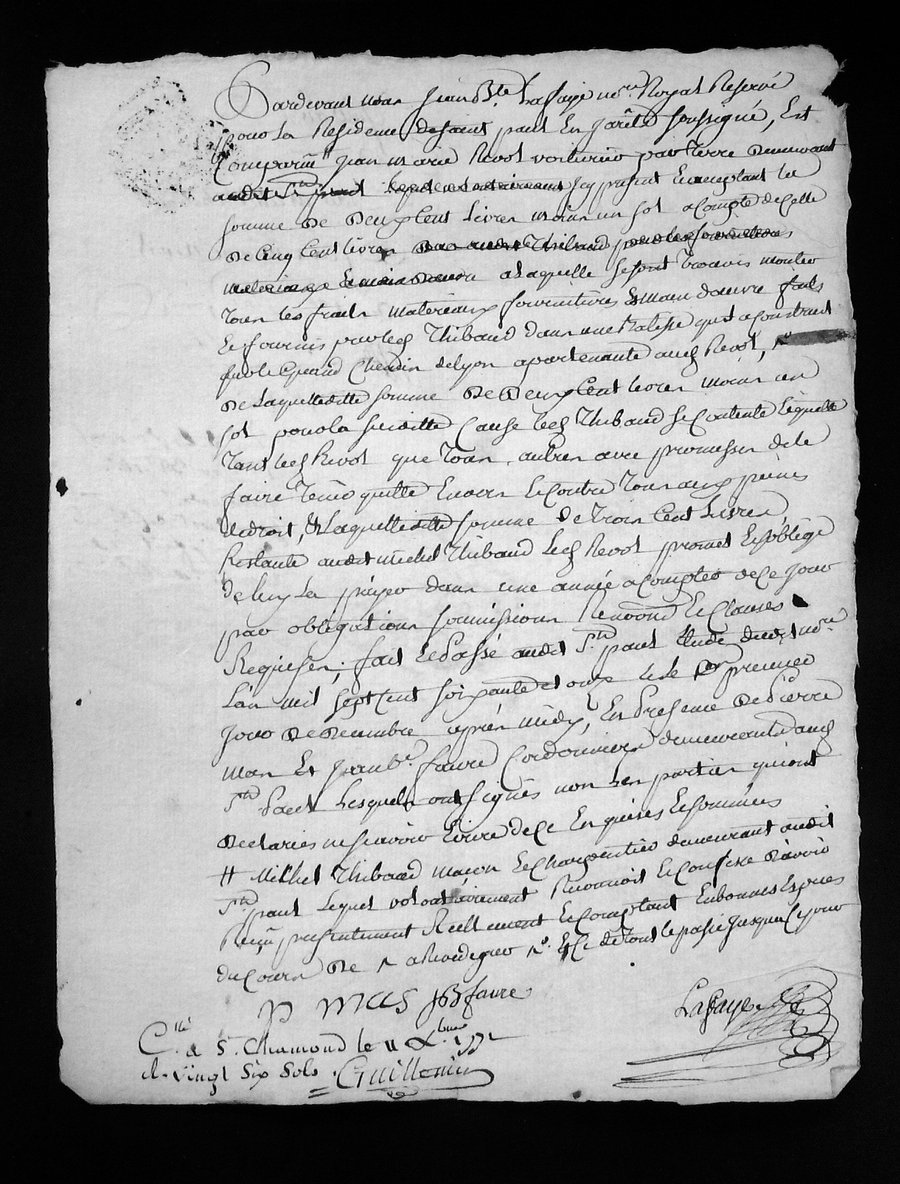 Pardevant nous Jean Bte Lafaye nore Royal Reservé
pour La Residence de saint paul En jarêts soussigné, Est
Comparu Jean marie Revol voiturier par terre demeurant
audit St paul Lequel icy present En augmtant la
somme de Deux Cent Livres moins un sol a Compte de Celle
de Cinq Cent livres a laquelle se sont trouvés monter
tous les frais materiaux fournitures & main d'œuvre faits
Et fournis par led Thibaud dans une Batisse qu'il a Construit
sur le Grand Chemin de Lyon apartenante aud Revol,
de Laquelle ditte somme De Deux Cent livres moins un
sol pour la susditte Cause led Thibaud se Contente Et quitte
tant led Revol que tous autres avec promesses de le
faire tenir quitte Envers Et Contre tous aux peines
de droit, Et Laquelle ditte somme de trois Cent Livres
Restante audit michel Thibaud Led Revol promet Et s'oblige
de luy La payer dans une année a Compter de Ce jour
par obligations soumissions Renonons Et Clauses
Requises; fait Et Passé audit St paul Etude dudit nore
L'an mil sept Cent soixante et onze Et le premier
jour de Decembre après midy, En Presence de Pierre
mas Et Jean Bte favre Cordonniers demeurants aud
St Paul Lesquels ont signés non Les parties qui ont
declarés ne sçavoir Ecrire de Ce Enquises Et sommées
# Michel Thibaud maçon Et Charpentier demeurant audit
St paul Lequel volontairement Reconnoit Et Confesse d'avoir
Reçu presentement Reellement Et Comptant En bonnes Especes
du Cours De Et Ce de tout le passé jusqu'a Ce jour
P MAS JB favre
Lafaye
C.lé à St. Chamond le 11 Xbre 1771
R. vingt Six Sols Guillemin